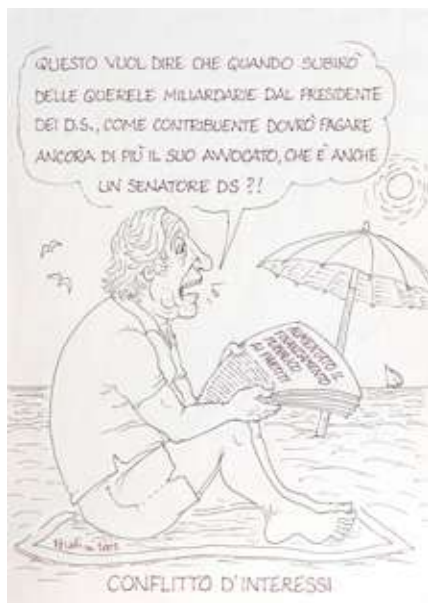 QUESTO VUOL DIRE CHE QUANDO SUBIRÒ
DELLE QUERELE MILIARDARIE DAL PRESIDENTE
DEI D.S., COME CONTRIBUENTE DOVRÒ PAGARE
ANCORA DI PIÙ IL SUO AVVOCATO, CHE È ANCHE
UN SENATORE DS ?!
AUMENTATO IL
FINANZIAMENTO
PUBBLICO
AI PARTITI
2002
CONFLITTO D'INTERESSI